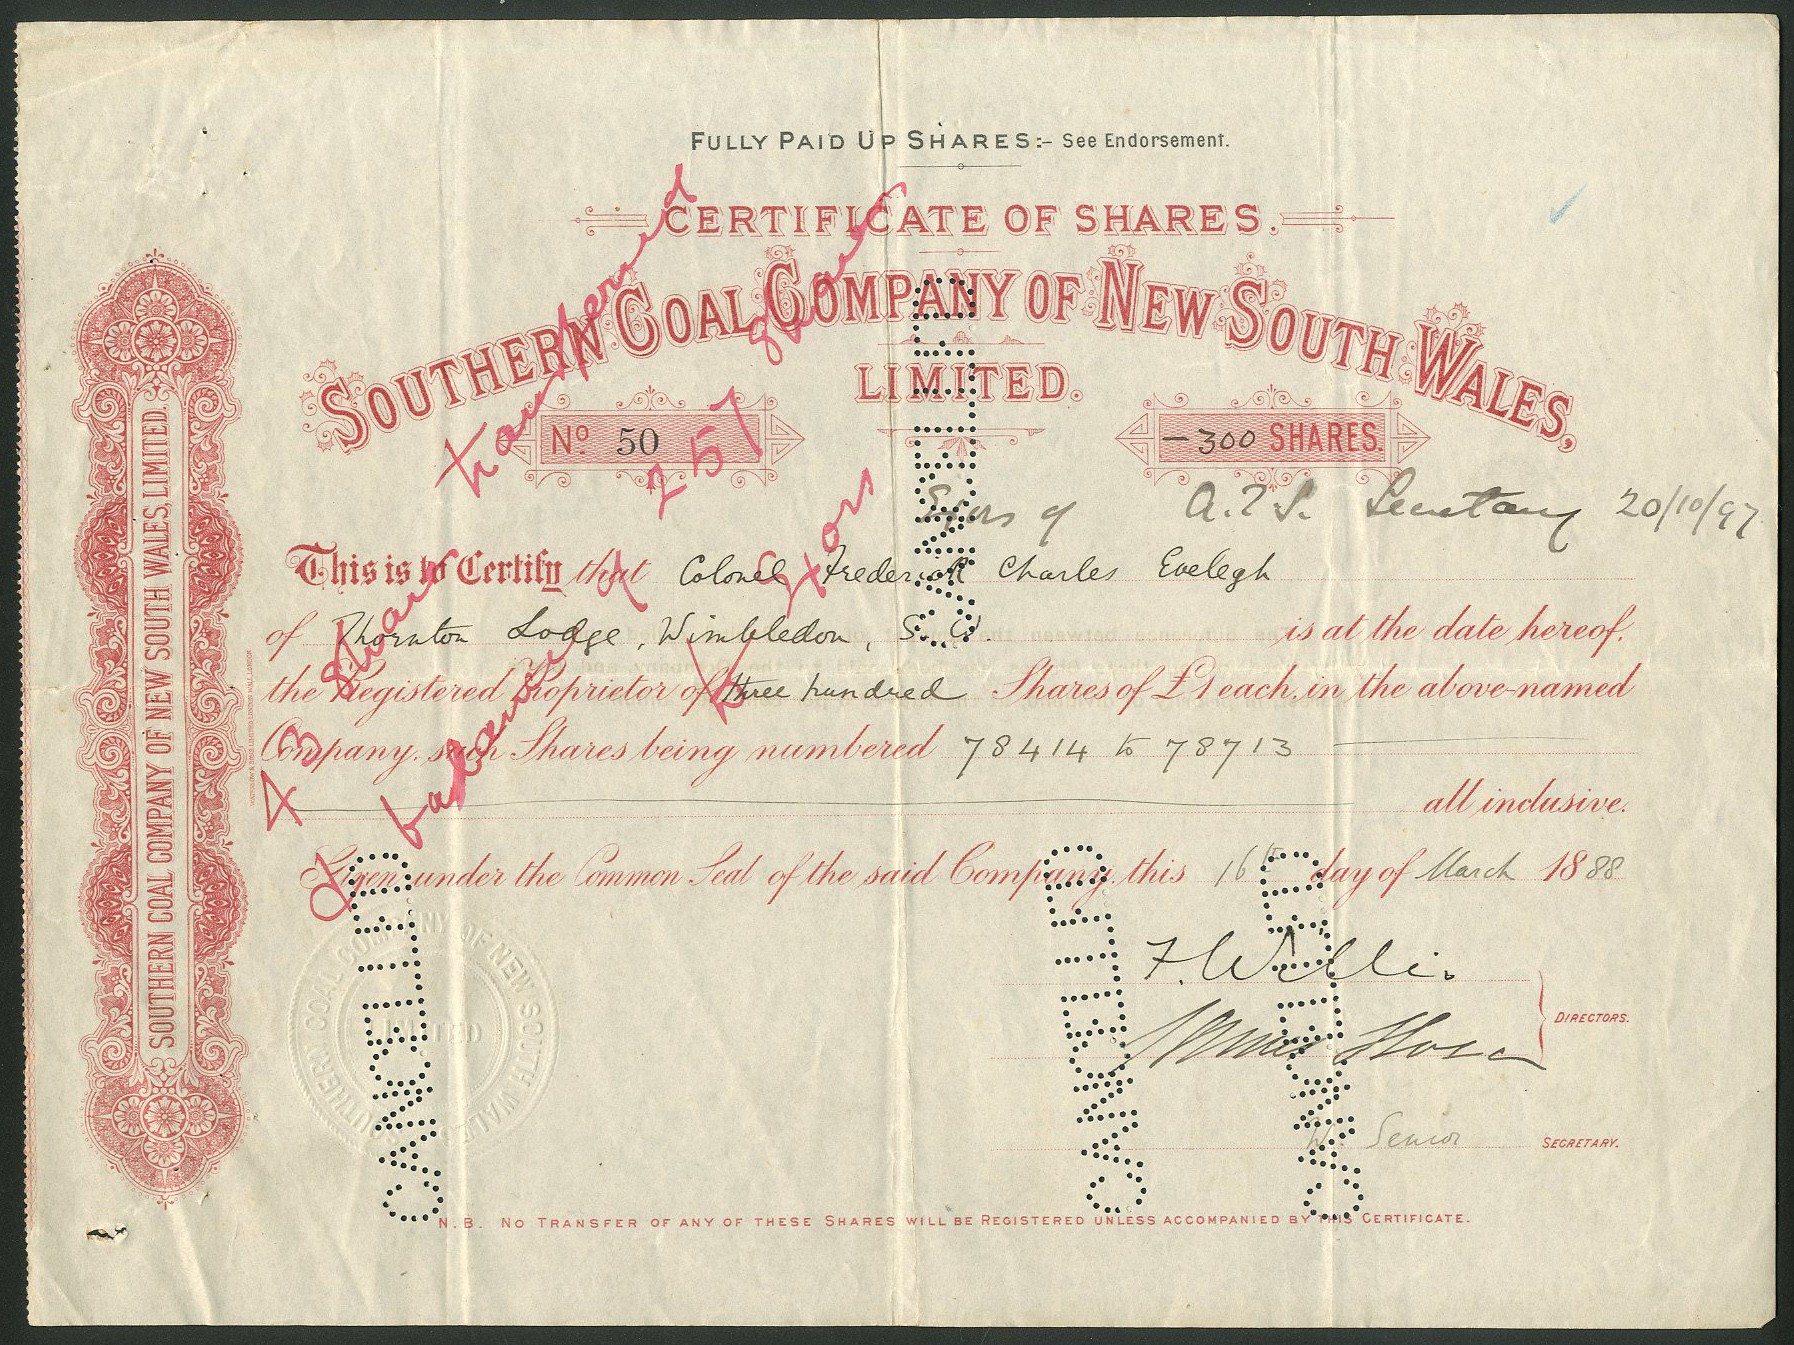 FULLY PAID UP SHARES:- See Endorsement.
CERTIFICATE OF SHARES.
SOUTHERN COAL COMPANY OF NEW SOUTH WALES,
LIMITED.
No. 50
-300 SHARES.
Exors of A.T.S. Secretary 20/10/97
This is to Certify that Colonel Frederick Charles Evelegh
of Thornton Lodge, Wimbledon, S.W. is at the date hereof,
the Registered Proprietor of three hundred Shares of £1 each, in the above-named
Company, such Shares being numbered 78414 to 78713
all inclusive.
Given under the Common Seal of the said Company, this 16th day of March 1888
F. Willis
DIRECTORS.
W. Senior SECRETARY.
N.B. NO TRANSFER OF ANY OF THESE SHARES WILL BE REGISTERED UNLESS ACCOMPANIED BY THIS CERTIFICATE.
SOUTHERN COAL COMPANY OF NEW SOUTH WALES, LIMITED.
257 Shares
transferred
43 Shares
balance
Exors
CANCELLED
CANCELLED
CANCELLED
CANCELLED
SOUTHERN COAL COMPANY OF NEW SOUTH WALES
LIMITED